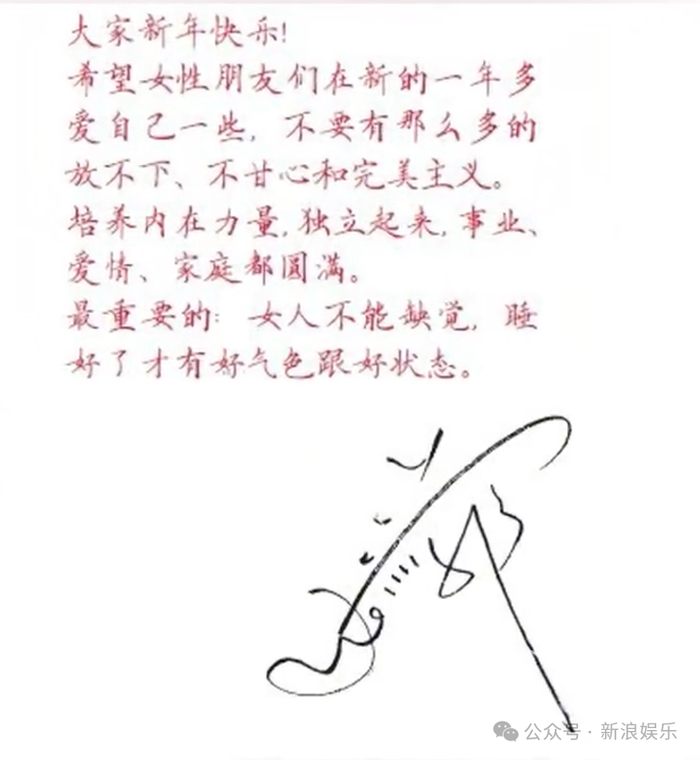 大家新年快乐!
希望女性朋友们在新的一年多
爱自己一些，不要有那么多的
放不下、不甘心和完美主义。
培养内在力量,独立起来,事业、
爱情、家庭都圆满。
最重要的：女人不能缺觉，睡
好了才有好气色跟好状态。
公众号·新浪娱乐